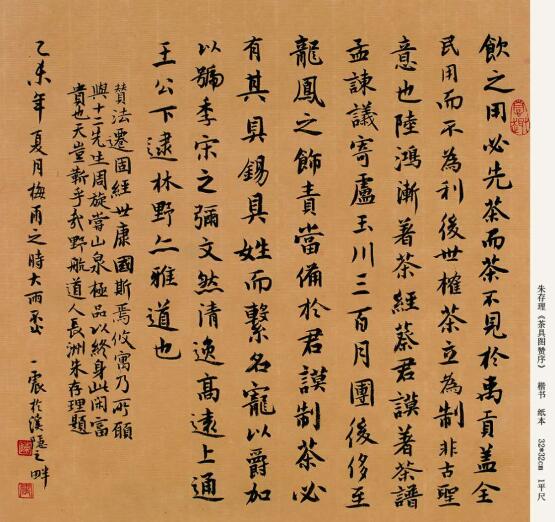 飲之用必先茶而茶不見於禹貢蓋全
民用而不為利後世榷茶立為制非古聖
意也陸鴻漸著茶經蔡君謨著茶譜
孟諫議寄盧玉川三百月團後侈至
龍鳳之飾責當備於君謨制茶必
有其具錫具姓而繫名寵以爵加
以號季宋之彌文然清逸高遠上通
王公下逮林野亦雅道也
贊法遷固經世康國斯焉攸寓乃所願
與十二先生周旋嘗山泉極品以終身此閑富
貴也天豈靳乎哉野航道人長洲朱存理題
乙未年夏月梅雨之時大雨 一震於之畔
朱存理《茶具图赞序》 楷书 纸本 32*32cm 1平尺